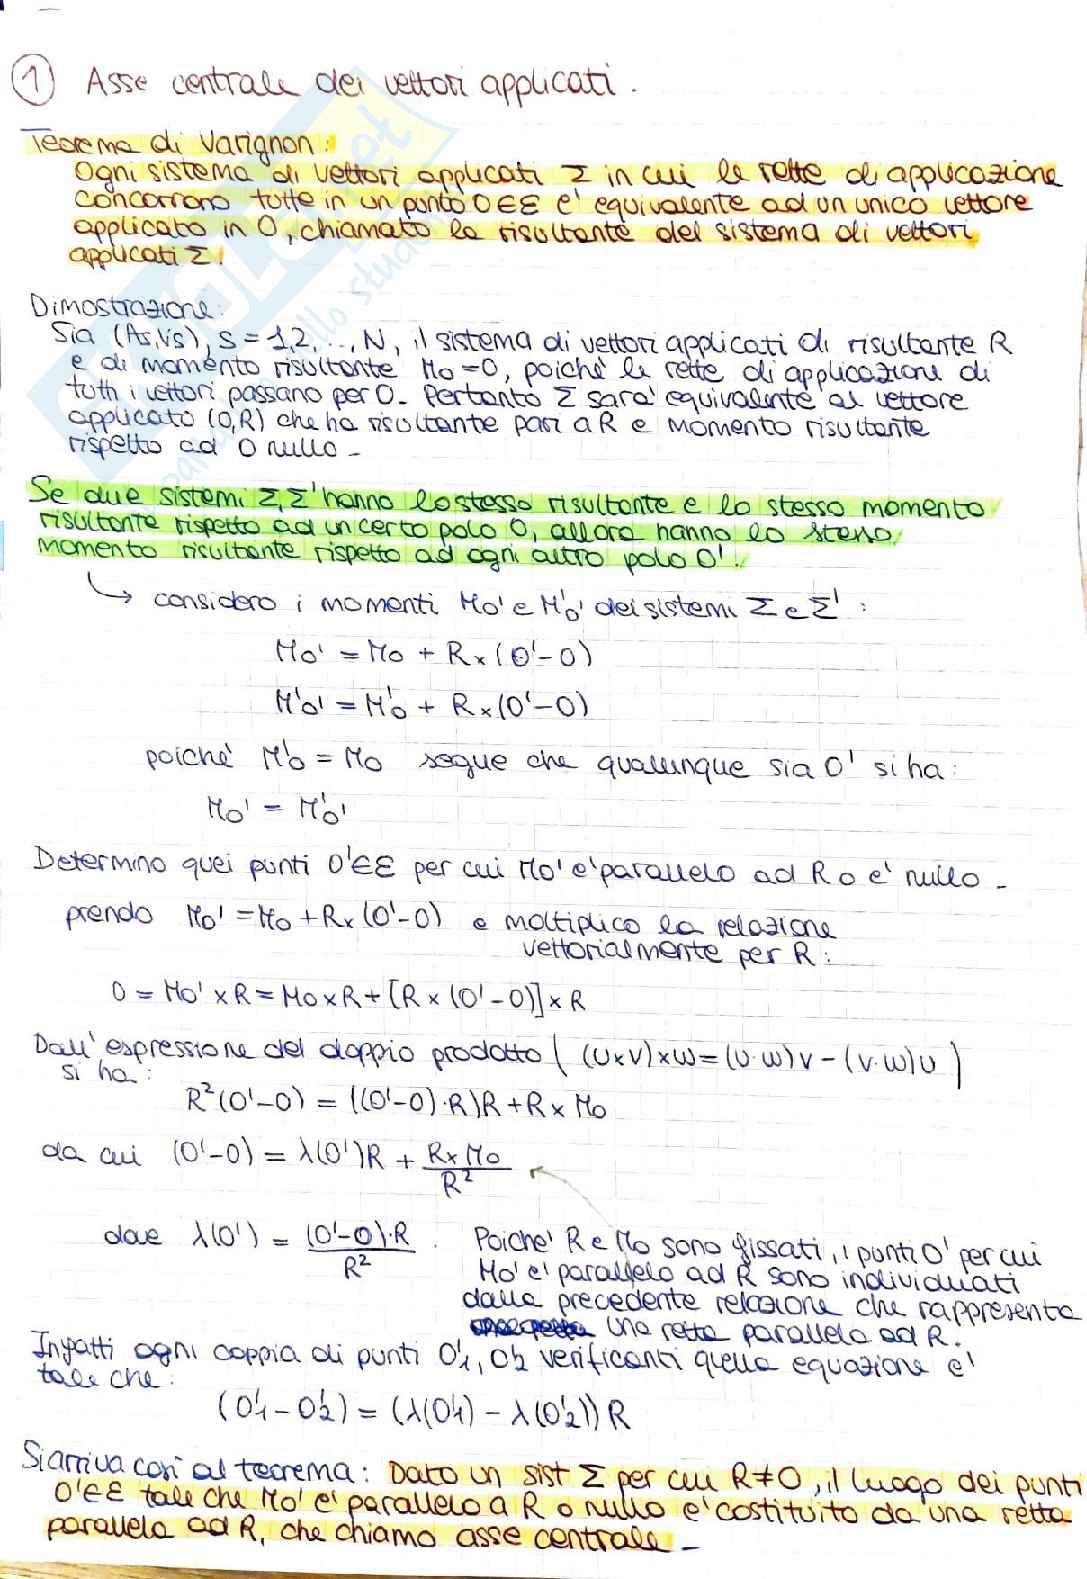 1 Asse centrale dei vettori applicati.
Teorema di Varignon:
Ogni sistema di vettori applicati Σ in cui le rette di applicazione
concorrono tutte in un punto O∈ℰ e' equivalente ad un unico vettore
applicato in O, chiamato la risultante del sistema di vettori
applicati Σ.
Dimostrazione:
Sia (As,vs), s=1,2,...,N, il sistema di vettori applicati di risultante R
e di momento risultante Mo=0, poiche' le rette di applicazione di
tutti i vettori passano per O. Pertanto Σ sara' equivalente al vettore
applicato (O,R) che ha risultante pari a R e momento risultante
rispetto ad O nullo.
Se due sistemi Σ, Σ' hanno lo stesso risultante e lo stesso momento
risultante rispetto ad un certo polo O, allora hanno lo stesso
momento risultante rispetto ad ogni altro polo O'.
→ considero i momenti Mo' e M'o' dei sistemi Σ e Σ':
Mo' = Mo + R×(O'-O)
M'o' = M'o + R×(O'-O)
poiche' M'o = Mo segue che qualunque sia O' si ha:
Mo' = M'o'
Determino quei punti O'∈ℰ per cui Mo' e' parallelo ad R o e' nullo.
prendo Mo' = Mo + R×(O'-O) e moltiplico la relazione
vettorialmente per R:
0 = Mo' × R = Mo × R + [R × (O'-O)] × R
Dall'espressione del doppio prodotto ( (u×v)×w = (u·w)v - (v·w)u )
si ha:
R²(O'-O) = ((O'-O)·R)R + R × Mo
da cui (O'-O) = λ(O')R + R×Mo / R²
dove λ(O') = (O'-O)·R / R² . Poiche' R e Mo sono fissati, i punti O' per cui
Mo' e' parallelo ad R sono individuati
dalla precedente relazione che rappresenta
una retta parallela ad R.
Infatti ogni coppia di punti O'1, O'2 verificanti quella equazione e'
tale che:
(O'1 - O'2) = (λ(O'1) - λ(O'2)) R
Si arriva cosi' al teorema: Dato un sist Σ per cui R≠0, il luogo dei punti
O'∈ℰ tale che Mo' e' parallelo a R o nullo e' costituito da una retta
parallela ad R, che chiamo asse centrale.